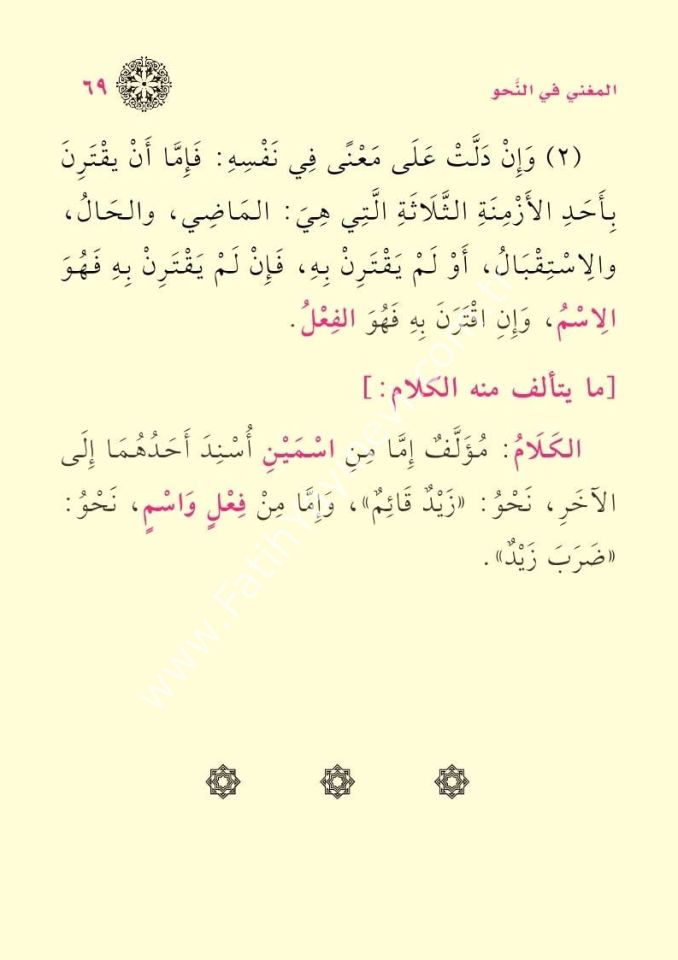 المغني في النَّحو
٦٩
(٢) وَإِنْ دَلَّتْ عَلَى مَعْنًى فِي نَفْسِهِ: فَإِمَّا أَنْ يقْتَرِنَ
بِأَحَدِ الأَزْمِنَةِ الثَّلَاثَةِ الَّتِي هِيَ: المَاضِي، والحَالُ،
والِاسْتِقْبَالُ، أَوْ لَمْ يَقْتَرِنْ بِهِ، فَإِنْ لَمْ يَقْتَرِنْ بِهِ فَهُوَ
الِاسْمُ، وَإِنِ اقْتَرَنَ بِهِ فَهُوَ الفِعْلُ.
[ما يتألف منه الكلام:]
الكَلَامُ: مُؤَلَّفٌ إِمَّا مِنِ اسْمَيْنِ أُسْنِدَ أَحَدُهُمَا إِلَى
الآخَرِ، نَحْوُ: «زَيْدٌ قَائِمٌ»، وَإِمَّا مِنْ فِعْلٍ وَاسْمٍ، نَحْوُ:
«ضَرَبَ زَيْدٌ».